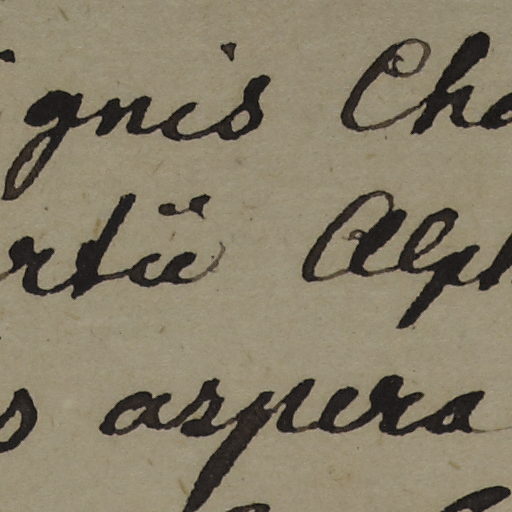 ignis Cha
rtii Alph
s aspera